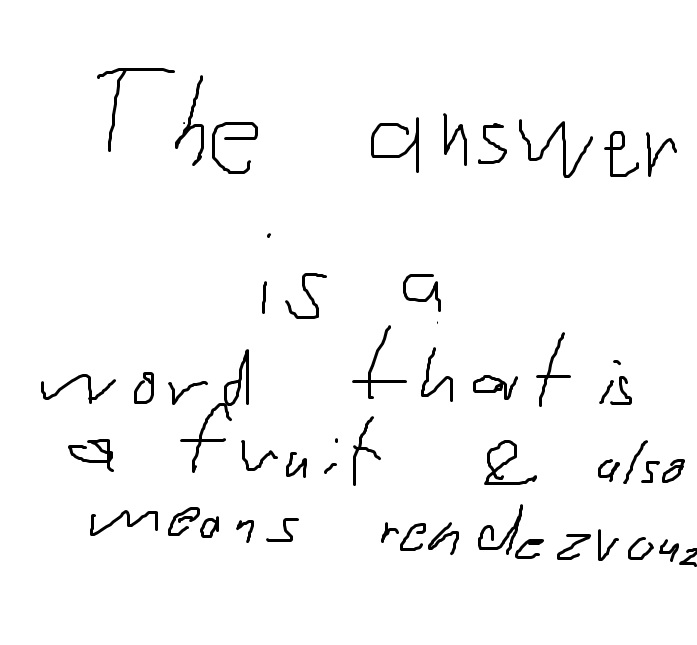 The answer
is a
word that is
a fruit & also
means rendezvouz